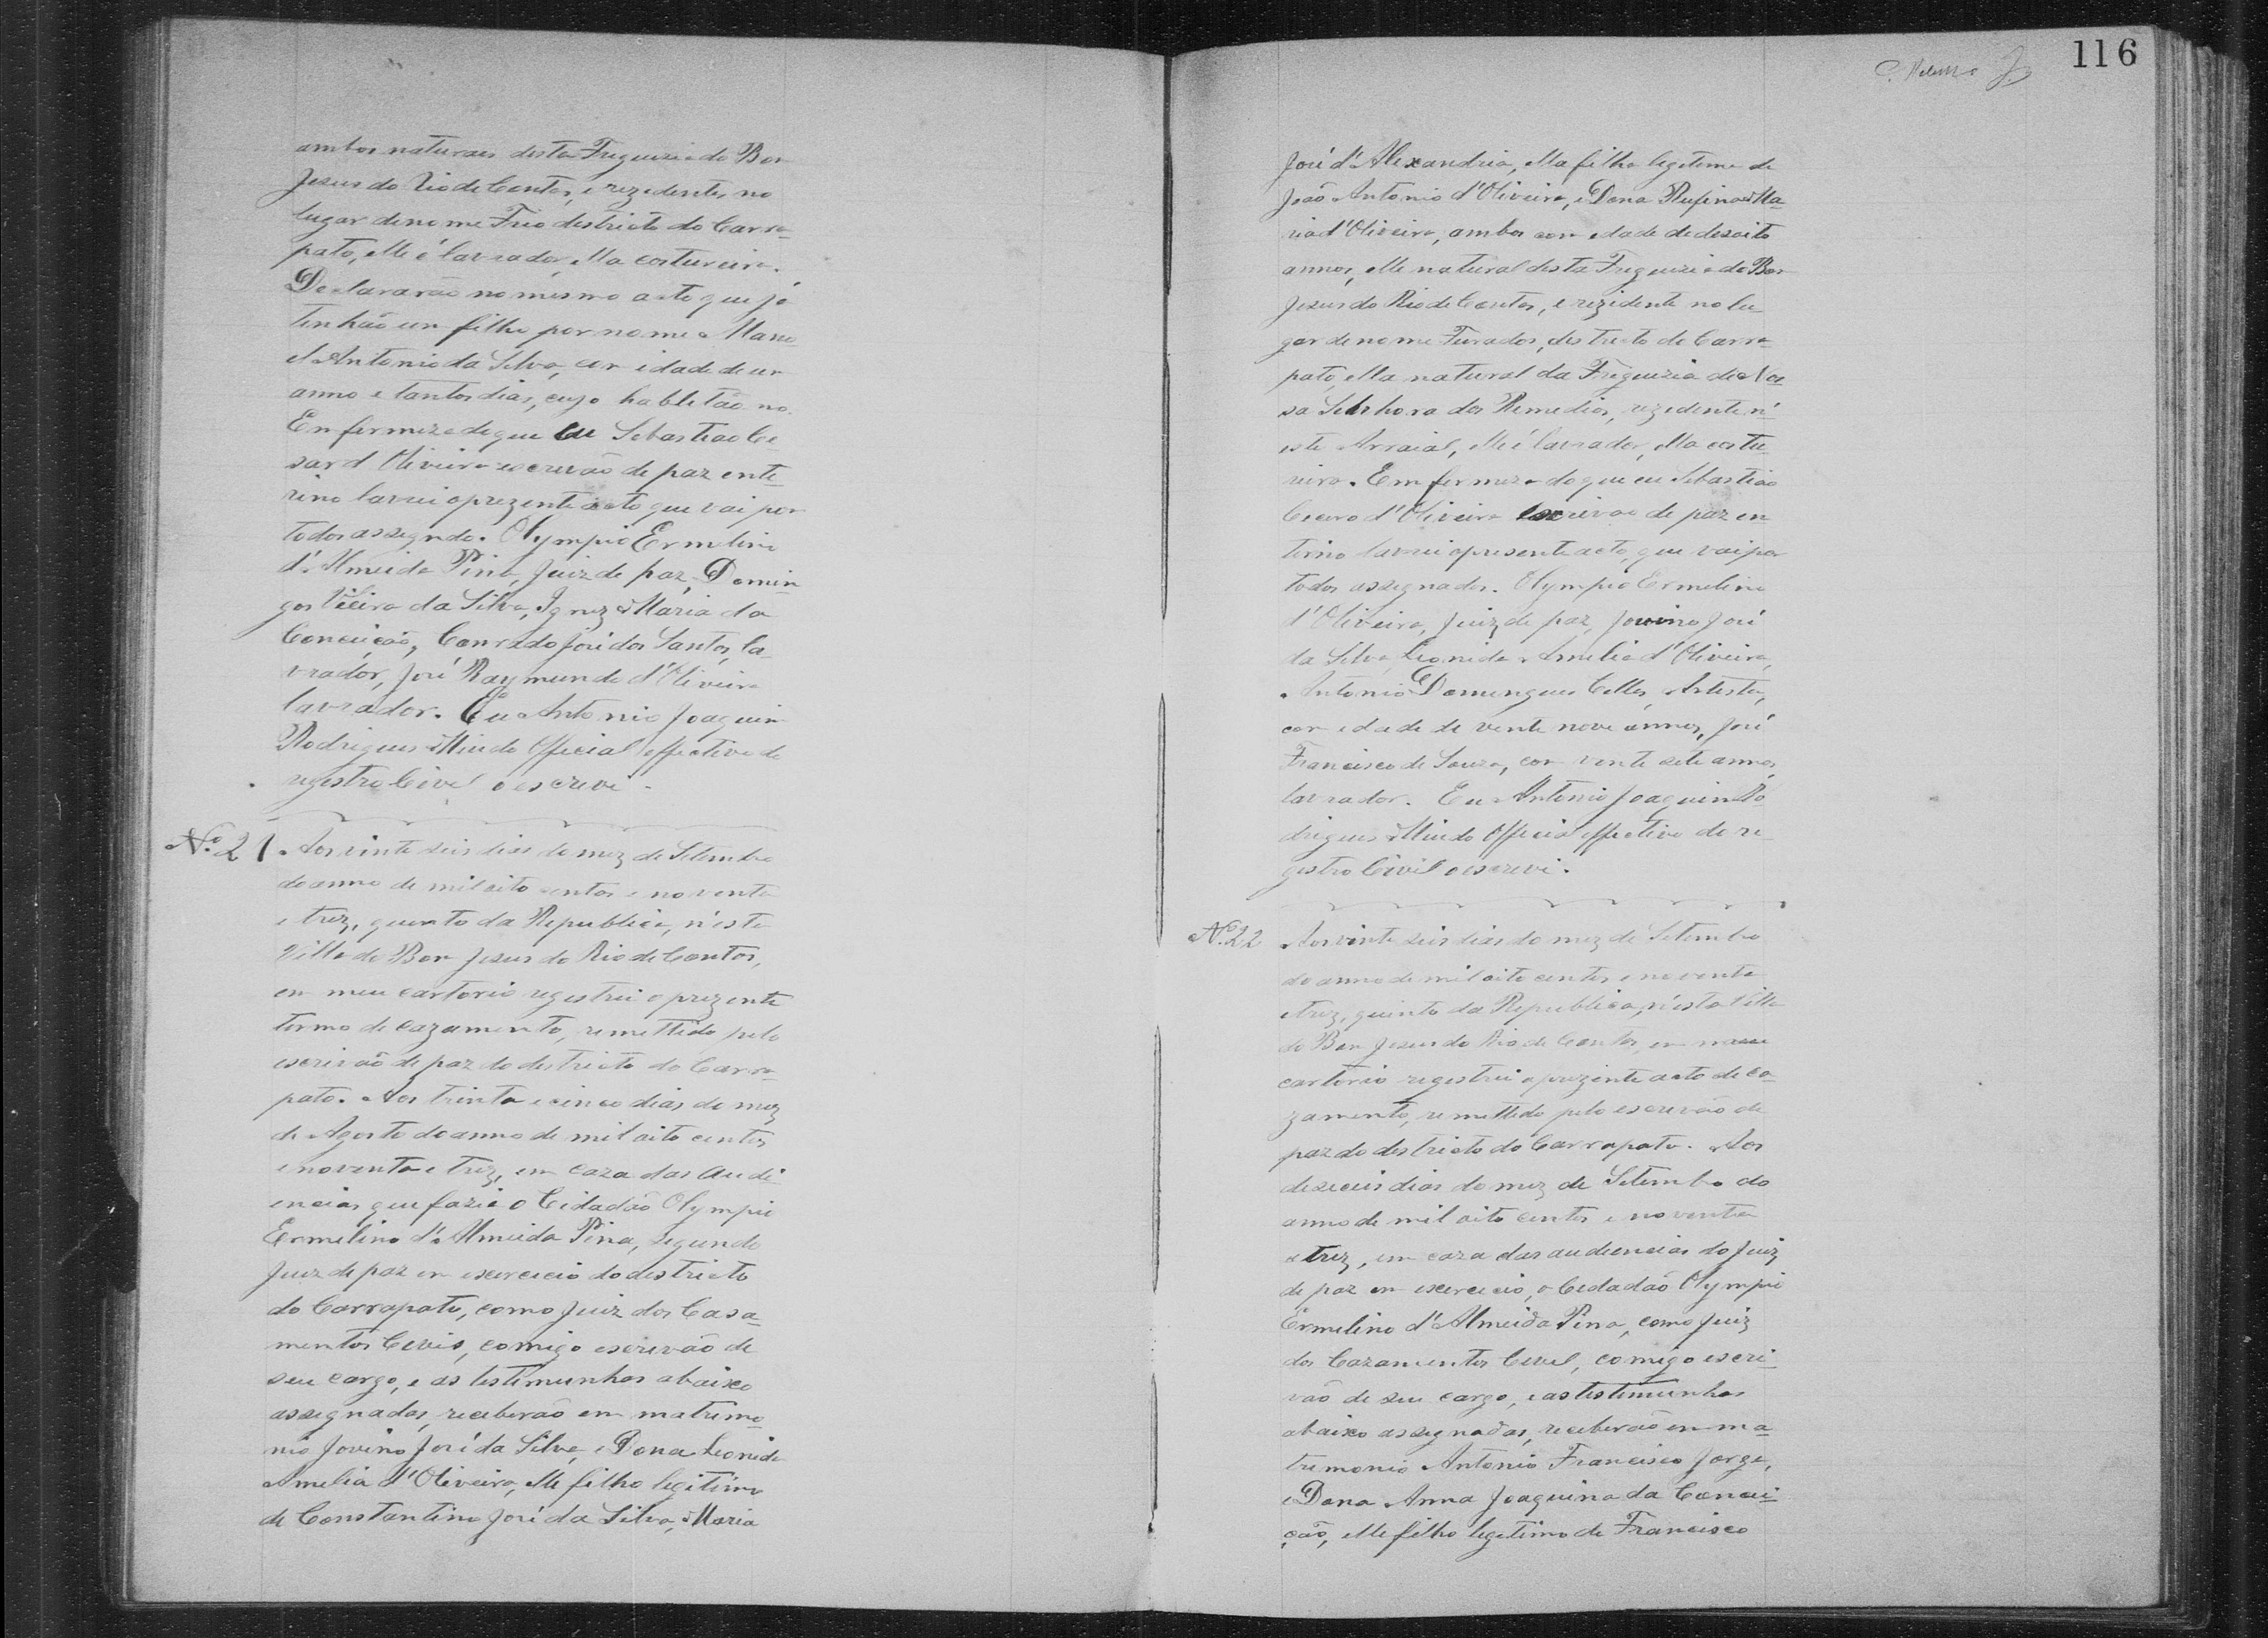 ambos naturaes desta Freguezia do Bom
Jesus do Rio de Contas, e rezedentes no
lugar de nome Frio destricto do Carra
pato, elle é lavrador, ella costureira.
Declararão no mesmo acto que já
tinhão um filho por nome Mano
el Antonio da Silva, com idade de um
anno e tantos dias, cujo habletão no
Em fermeza de que Eu Sebastiao Ce
sar d'Oliveira escrivão de paz ente
rino lavrei o prezente acto que vai por
todos assegnado. Olympio Ermelino
d'Almeida Pina, Juiz de paz, Domin
gos Vieira da Silva, Ignez Maria da
Conceição, Conrado José dos Santos, la
vrador, José Raymundo d'Oliveira
lavrador. Eu Antonio Joaquim
Rodrigues Official effectivo do
registro Civel o escrevi.
Nº 21. Aos vinte seis dias do mez de Setembro
do anno de mil oito centos e noventa
e trez, quinto da Republica, n'esta
Villa do Bom Jesus do Rio de Contas,
em meu cartorio registrei o prezente
termo de cazamento, remettido pelo
escrivão de paz do destricto do Carra
pato. Aos trinta e cinco dias do mez
de Agosto do anno de mil oito centos
e noventa e trez, em caza das audi
encias que fazia o Cidadão Olympio
Ermelino d'Almeida Pina, segundo
Juiz de paz em exercicio do destricto
do Carrapato, como Juiz dos Casa
mentos Cevis, comigo escrivão de
seu cargo, e as testimunhas abaixo
assegnadas, receberão em matrimo
nio Jovino José da Silva, e Dona Leonida
Amelia d'Oliveira, elle filho legitimo
de Constantino José da Silva, Maria
116
José d'Alexandria, ella filha legetima de
João Antonio d'Oliveira, e Dona Rufina Ma
ria d'Oliveira, ambos com edade de desoito
annos, elle natural desta Freguezia do Bom
Jesus do Rio de Contas, e rezidente no lu
gar de nome Furados, destricto do Carra
pato, ella natural da Freguezia de Nos
sa Senhora dos Remedios, rezedente n'
este Arraial, elle é lavrador, ella costu
reira. Em fermeza do que eu Sebastião
Cicero d'Oliveira Escrivão de paz en
terino lavrei o presente acto, que vai por
todos assegnados. Olympio Ermelino
d'Oliveira, Juiz de paz, Jovino José
da Silva, Leonida Amelia d'Oliveira,
Antonio Domingues Artesta,
com edade de vente nove annos, José
Francisco de Souza, com vente sete annos,
lavrador. Eu Antonio Joaquim Ro
drigues Official effectivo do re
gestro Civil o escrevi.
Nº 22 Aos vinte seis dias do mez de Setembro
do anno de mil oito centos e noventa
e trez, quinto da Republica, n'esta Villa
do Bom Jesus do Rio de Contas, em meu
cartorio registrei o prezente acto de ca
zamento, remettido pelo escrivão de
paz do destricto do Carrapato. Aos
deseceis dias do mez de Setembro do
anno de mil oito centos e noventa
e trez, em caza das audiencias do Juiz
de paz em exercicio, o Cedadão Olympio
Ermelino d'Almeida Pina, como Juiz
dos Cazamentos Cevel, comigo escri
vão de seu cargo, e as testimunhas
abaixo assegnadas, receberão em ma
tremonio Antonio Francisco Jorge,
e Dona Anna Joaquina da Concei
ção, elle filho legetimo de Francisco